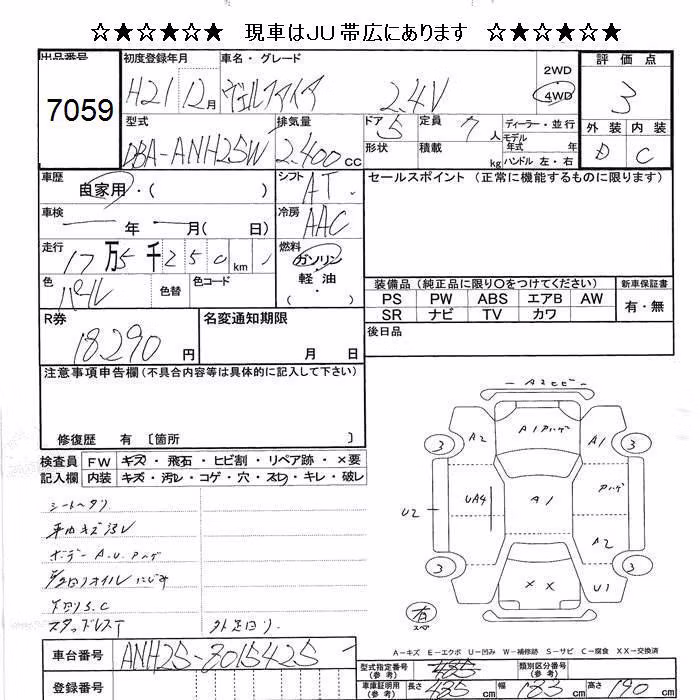 ☆★☆★☆★ 現車はJU帯広にあります ☆★☆★☆★
出品番号
7059
初度登録年月
H21 12月
車名・グレード
ヴェルファイア 2.4V
2WD
4WD
評価点
3
外装 内装
D C
型式
DBA-ANH25W
排気量
2.400cc
ドア 5
形状
定員 7人
積載 kg
ディーラー・並行
モデル年式 年
ハンドル 左・右
車歴
自家用・( )
シフト
AT
セールスポイント (正常に機能するものに限ります)
車検
年 月( 日)
冷房
AAC
走行
17万5千250km
燃料
ガソリン
軽油
色
パール
色替
色コード
装備品(純正品に限り〇をつけてください)
新車保証書
PS PW ABS エアB AW
有・無
SR ナビ TV カワ
R券
18.290円
名変通知期限
月 日
後日品
注意事項申告欄(不具合内容等は具体的に記入して下さい)
修復歴 有 〔箇所 〕
検査員記入欄
FW キズ・飛石・ヒビ割・リペア跡・×要
内装 キズ・汚レ・コゲ・穴・スレ・キレ・破レ
シートヘタリ
車内キズヨゴレ
ボデーA.U.アハゲ
下回りS.C
スタッドレスT
外足回り
A2ヒビ
A2
A1ハゲ
A1
3
3
UA4
A1
アハゲ
U2
A2
3
3
××
U1
有
スペア
A-キズ E-エクボ U-凹み W-補修跡 S-サビ C-腐食 XX-交換済
車台番号
ANH25-8015425
型式指定番号(参考)
類別区分番号(参考)
登録番号
車庫証明用(参考)
長さ 485cm
幅 183cm
高さ 190cm